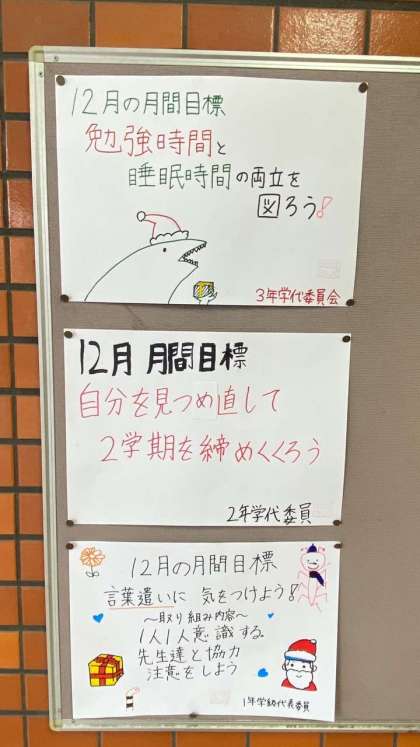 12月の月間目標
勉強時間と
睡眠時間の両立を
図ろう!
3年学代委員会
12月 月間目標
自分を見つめ直して
2学期を締めくくろう
2年学代委員
12月の月間目標
言葉遣いに 気をつけよう!
～取り組み内容～
1人1人意識する。
先生達と協力
注意をしよう
1年学級代表委員